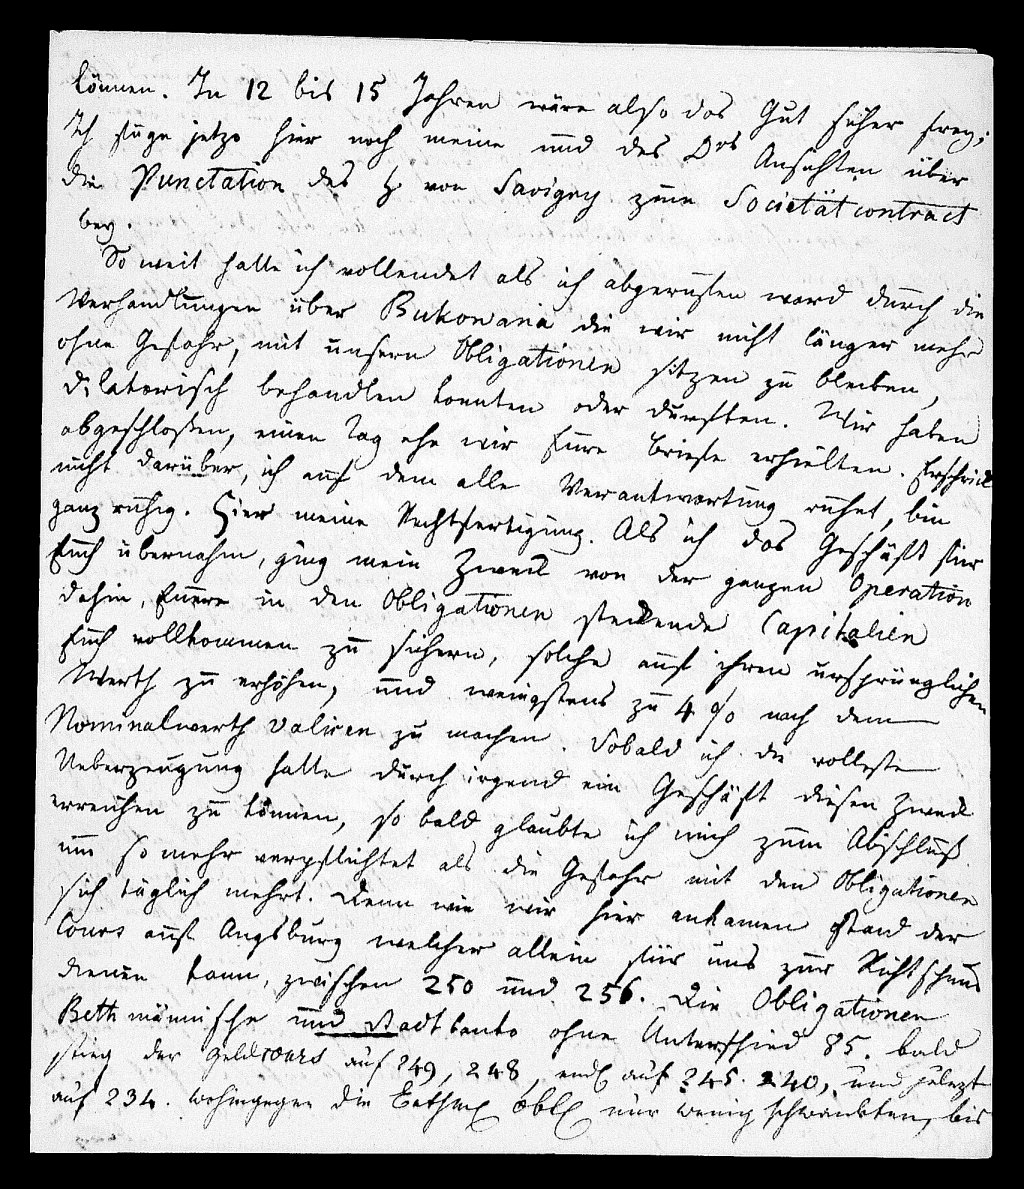 können. In 12 bis 15 Jahren wäre also das Gut sicher frey;
Ich füge jetzo hier noch meine und des Drs Ansichten über
die Punctation des H. von Savigny zum Societätcontract
bey.
So weit hatte ich vollendet als ich abgerufen ward durch die
Verhandlungen über Bukowana die wir nicht länger mehr
ohne Gefahr, mit unsern Obligationen sitzen zu bleiben,
dilatorisch behandlen konnten oder durften. Wir haben
abgeschloßen, einen Tag ehe wir Eure Briefe erhielten. Erschrick
nicht darüber, ich auf dem alle Verantwortung ruhet, bin
ganz ruhig. Hier meine Rechtfertigung. Als ich das Geschäft für
Euch übernahm, ging mein Zweck von der ganzen Operation
dahin, Euere in den Obligationen steckende Capitalien
Euch vollkommen zu sichern, solche auf ihren ursprünglichen
Werth zu erhöhen, und wenigstens zu 4 % nach dem
Nominalwerth valiren zu machen. Sobald ich die volleste
Ueberzeugung hatte durch irgend ein Geschäft diesen Zweck
erreichen zu können, so bald glaubte ich mich zum Abschluß
um so mehr verpflichtet als die Gefahr mit den Obligationen
sich täglich mehrt. Denn wie wir hier ankamen stand der
Cours auf Augsburg welcher allein für uns zur Richtschnur
dienen kann, zwischen 250 und 256. Die Obligationen
Bethmännische und Stadtbanko ohne Unterschied 85. bald
stieg der Geldcours auf 249, 248, endl auf 245. 240, und zulezt
auf 234. wohingegen die Bethm Obl nur wenig schwankten, bis